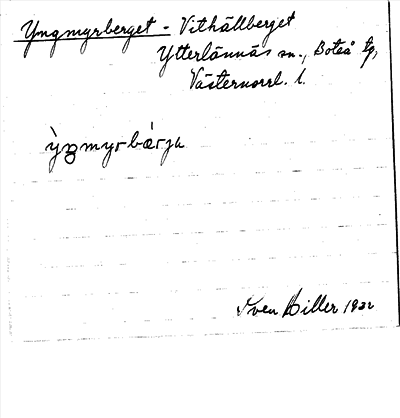 Yngmyrberget - Vithällberget
Ytterlännäs sn., Boteå tg,
Västernorrl. l.
ỳŋmyrbærja
Sven Hiller 1932